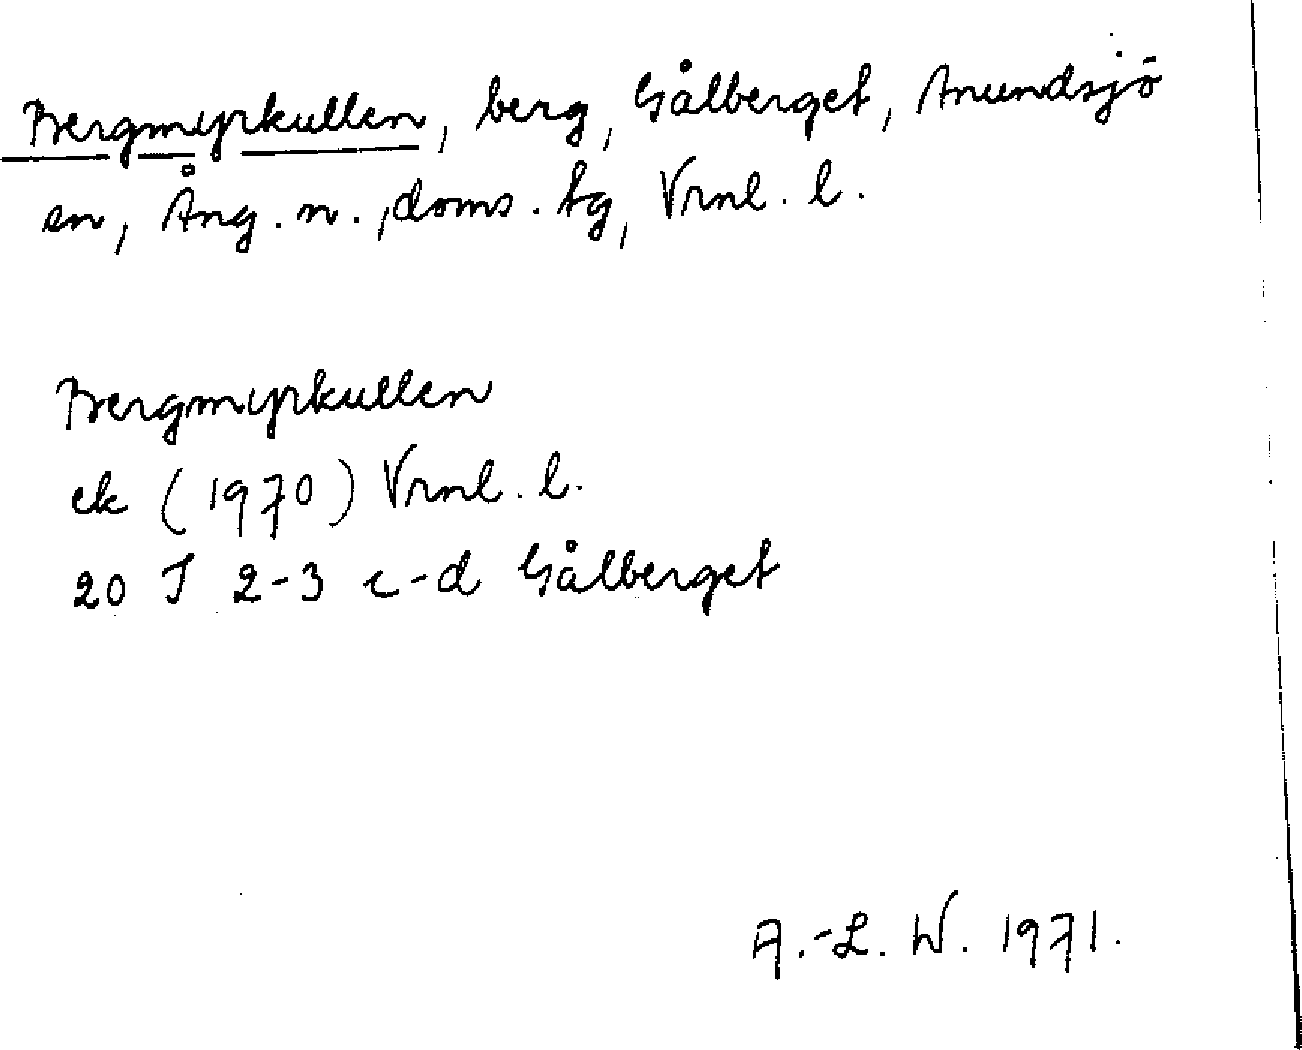 Bergmyrkullen, berg, Gålberget, Anundsjö
sn, Ång. n., doms. tg, Vrnl. l.
Bergmyrkullen
ek (1970) Vrnl. l.
20 J 2-3 c-d Gålberget
A.-L. W. 1971.